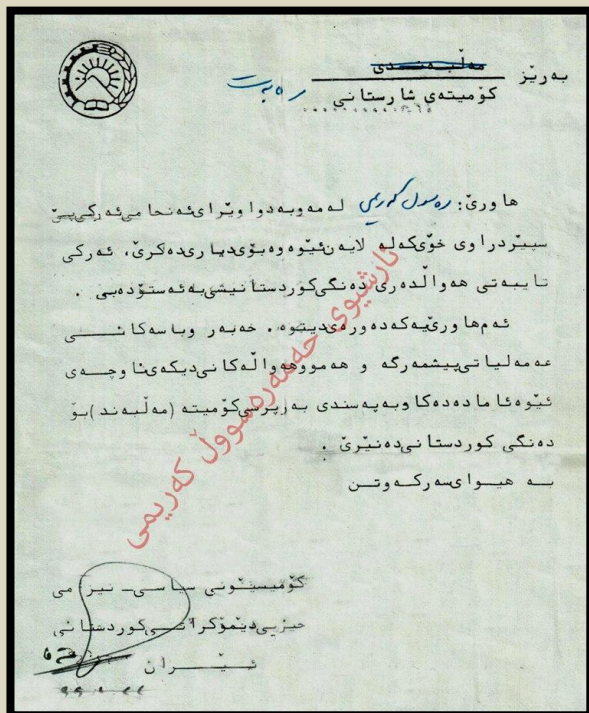 بەرێز
مەڵبەندی
کۆمیتەی شارستانی
ربەت
هاورێ: رەسول کەریمی لەمەوبەدوا وێرای ئەنجامی ئەرکی پێ
سپێردراوی خۆی کە لە لایەن ئێوەوە بۆی دیاری دەکرێ، ئەرکی
تایبەتی هەواڵدەری دەنگی کوردستانیشی بە ئەستۆ دەبێ .
ئەم هاورێیە کە دەورەی دیتوە، خەبەر و باسەکانی
عەمەلیاتی پیشمەرگە و هەموو هەواڵەکانی دیکەی ناوچەی
ئێوە ئامادە دەکا و بە پەسندی بەرپرسی کۆمیتە (مەڵبەند) بۆ
دەنگی کوردستانی دەنێرێ .
بە هیوای سەرکەوتن
کۆمیسیۆنی سیاسی - نیزامی
حیزبی دێموکراتی کوردستانی
ئێران
ئارشیوی حەمەرەسووڵ کەریمی